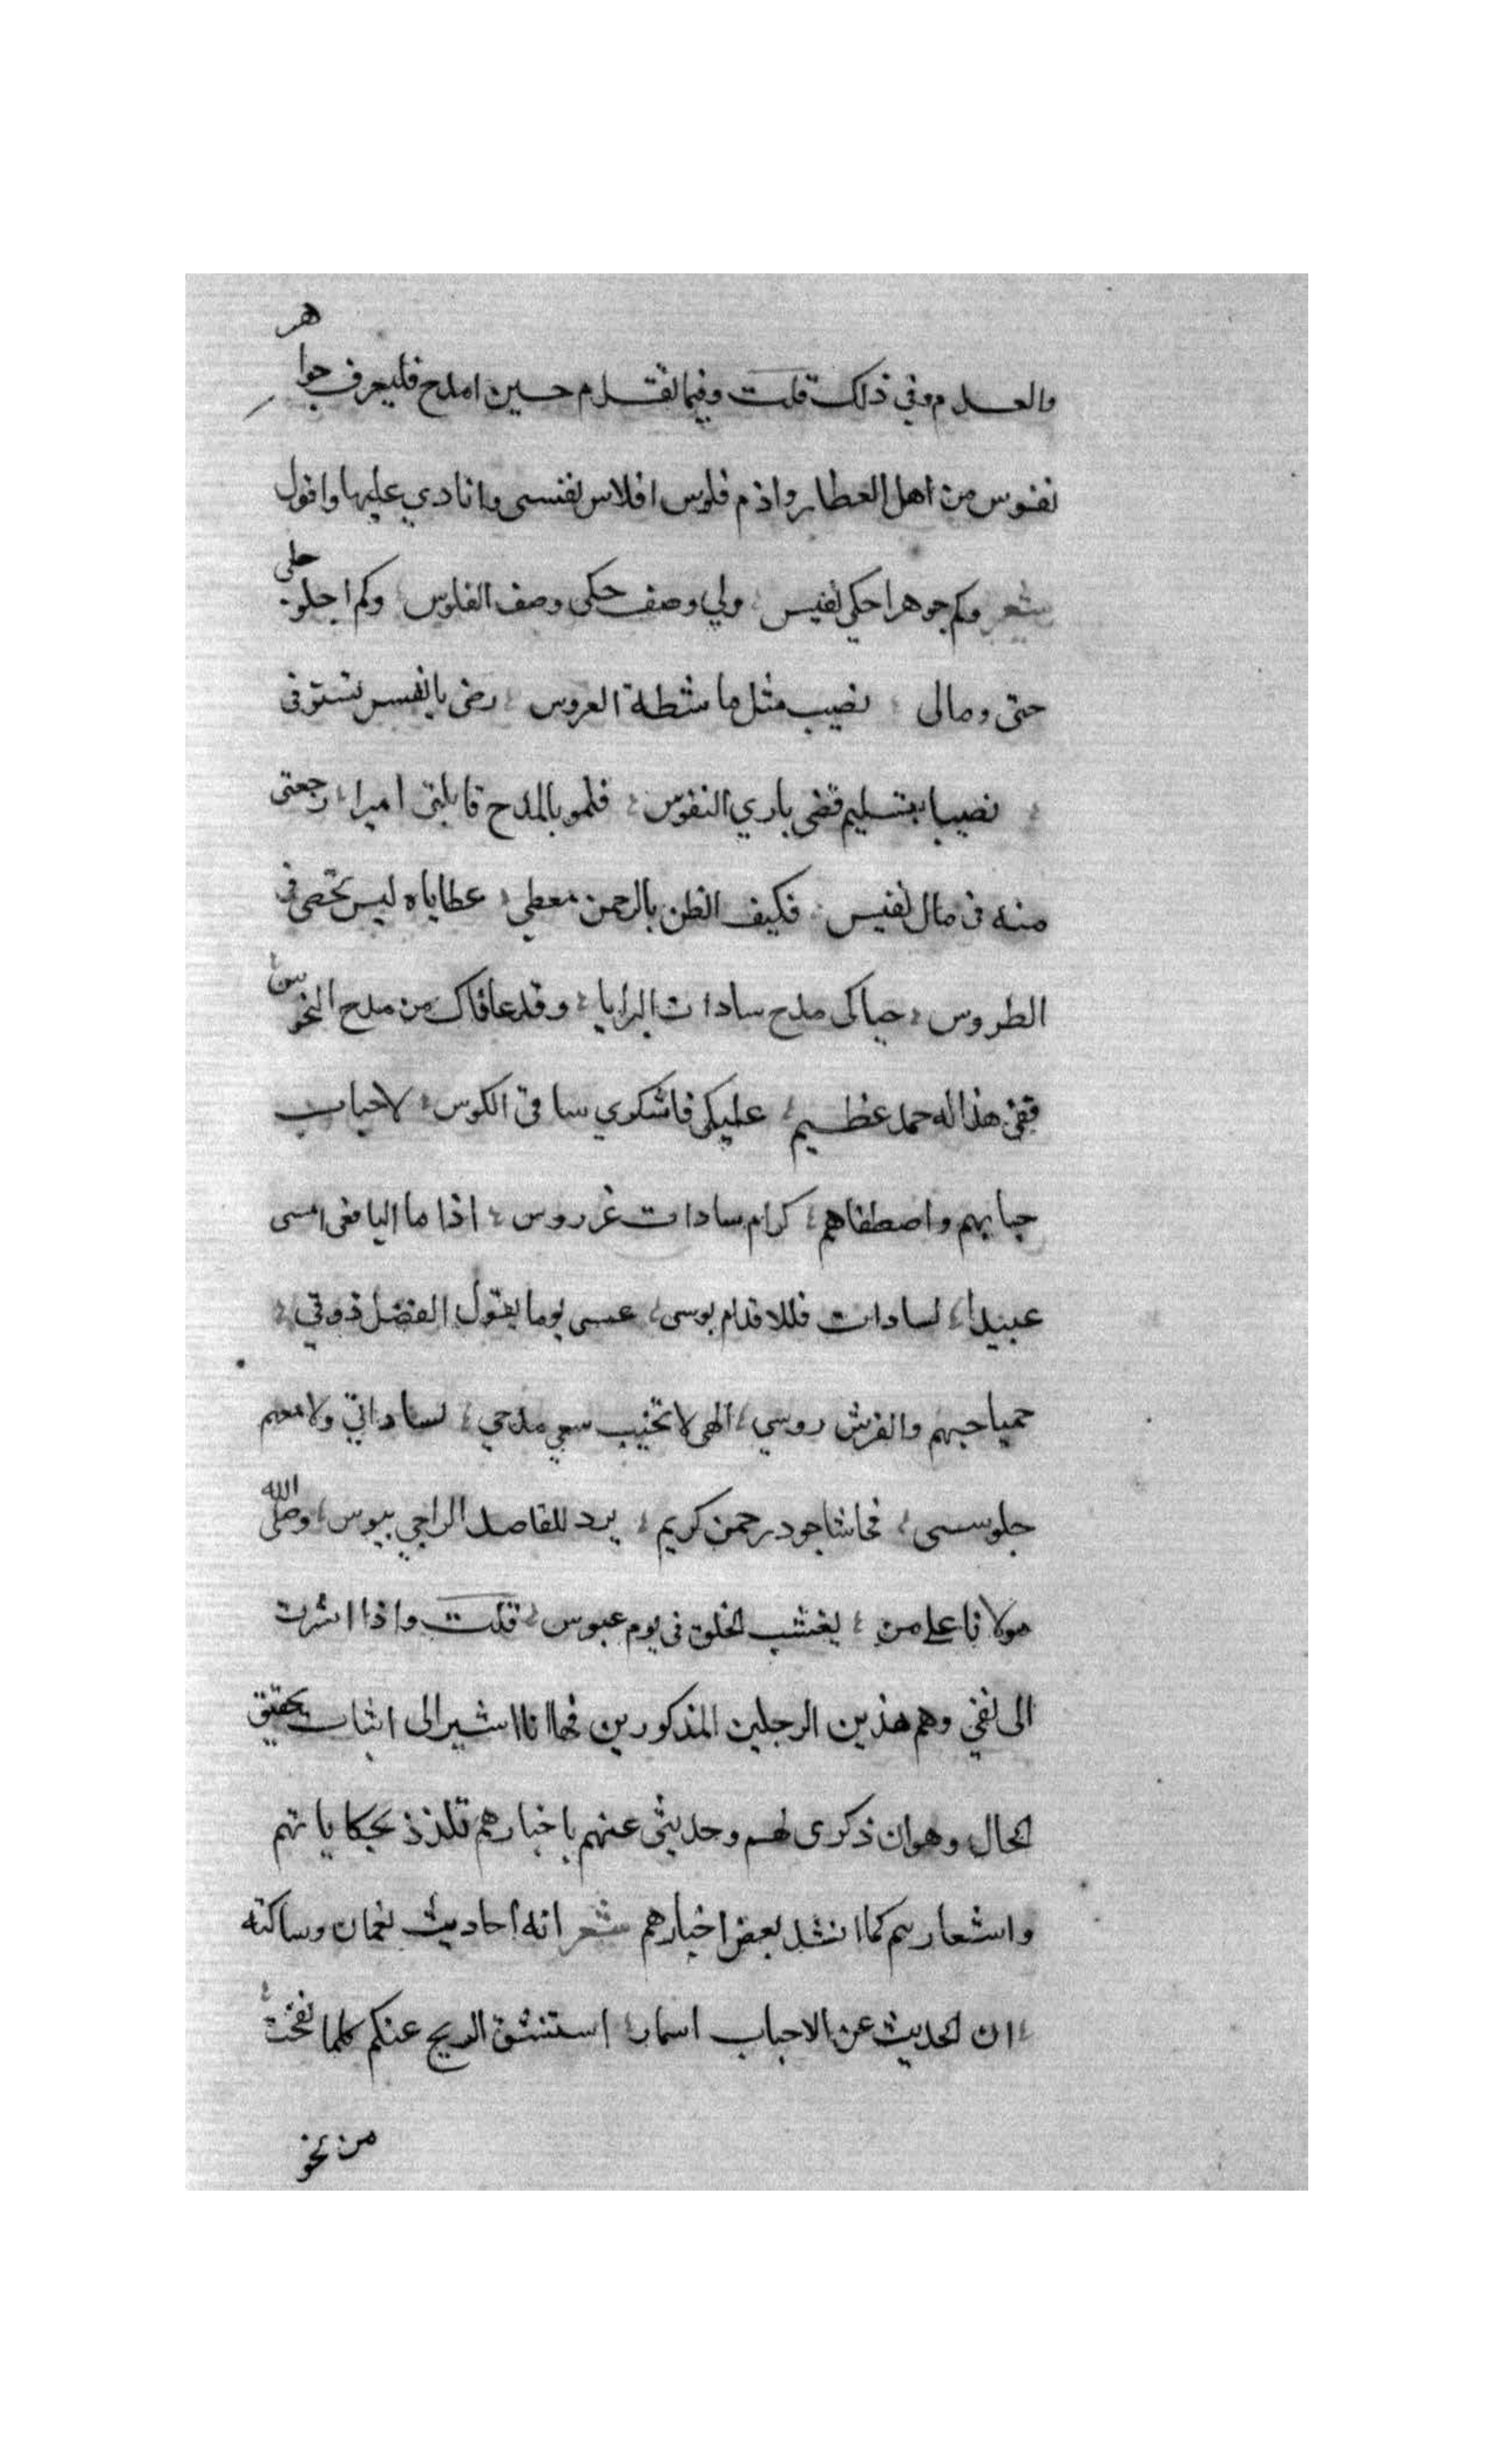 والعدم وفي ذلك قلت وفيما تقدم حسين امدح فليعرف جواهر
نفوس من اهل العطا واذم فلوس افلاس نفسى وانادي عليها واقول
شعر وكم جوهر احكى نفيس ولي وصف حكى وصف الفلوس وكم اجلو حلى
حتى ومالى نصيب مثل ماشطة العروس رضى يا نفس تستوفى
نصيبا بتسليم قضى باري النفوس فلمو بالمدح قابلتى اميرا رجعتى
منه فى مال نفيس فكيف الظن بالرحمن معطي عطاياه ليس تحصى فى
الطروس حباكى مدح سادات البرايا وقد عافاك من مدح النحوس
ففى هذا له حمد عظيم عليكى فاشكوي ساقى الكوس لاحباب
حباهم واصطفاهم كرام سادات غر روس اذا ما اليافعى امسى
عبيدا لسادات فللاقدام بوسى عسى يوما يقول الفضل ذوقي
حميا حبهم والفرش روسي الهى لا تخيب سعي مدحي لساداتي ولا معهم
جلوسى فحاشا جود رحمن كريم يرد للقاصد الراجي بيوس وصلى الله
مولانا على من يغيث الخلق فى يوم عبوس قلت واذا اشرت
الى نفي وهم هذين الرجلين المذكورين فها انا اشير الى اثبات تحقيق
الحال وهو ان ذكرى لهم وحديثى عنهم باخبارهم تلذذ بحكاياتهم
واشعارهم كما انشد بعض اخبارهم شعر انه احاديث نعمان وساكنه
ان الحديث عن الاحباب اسمار استنشق الريح عنكم كلما نفحت
من نحو